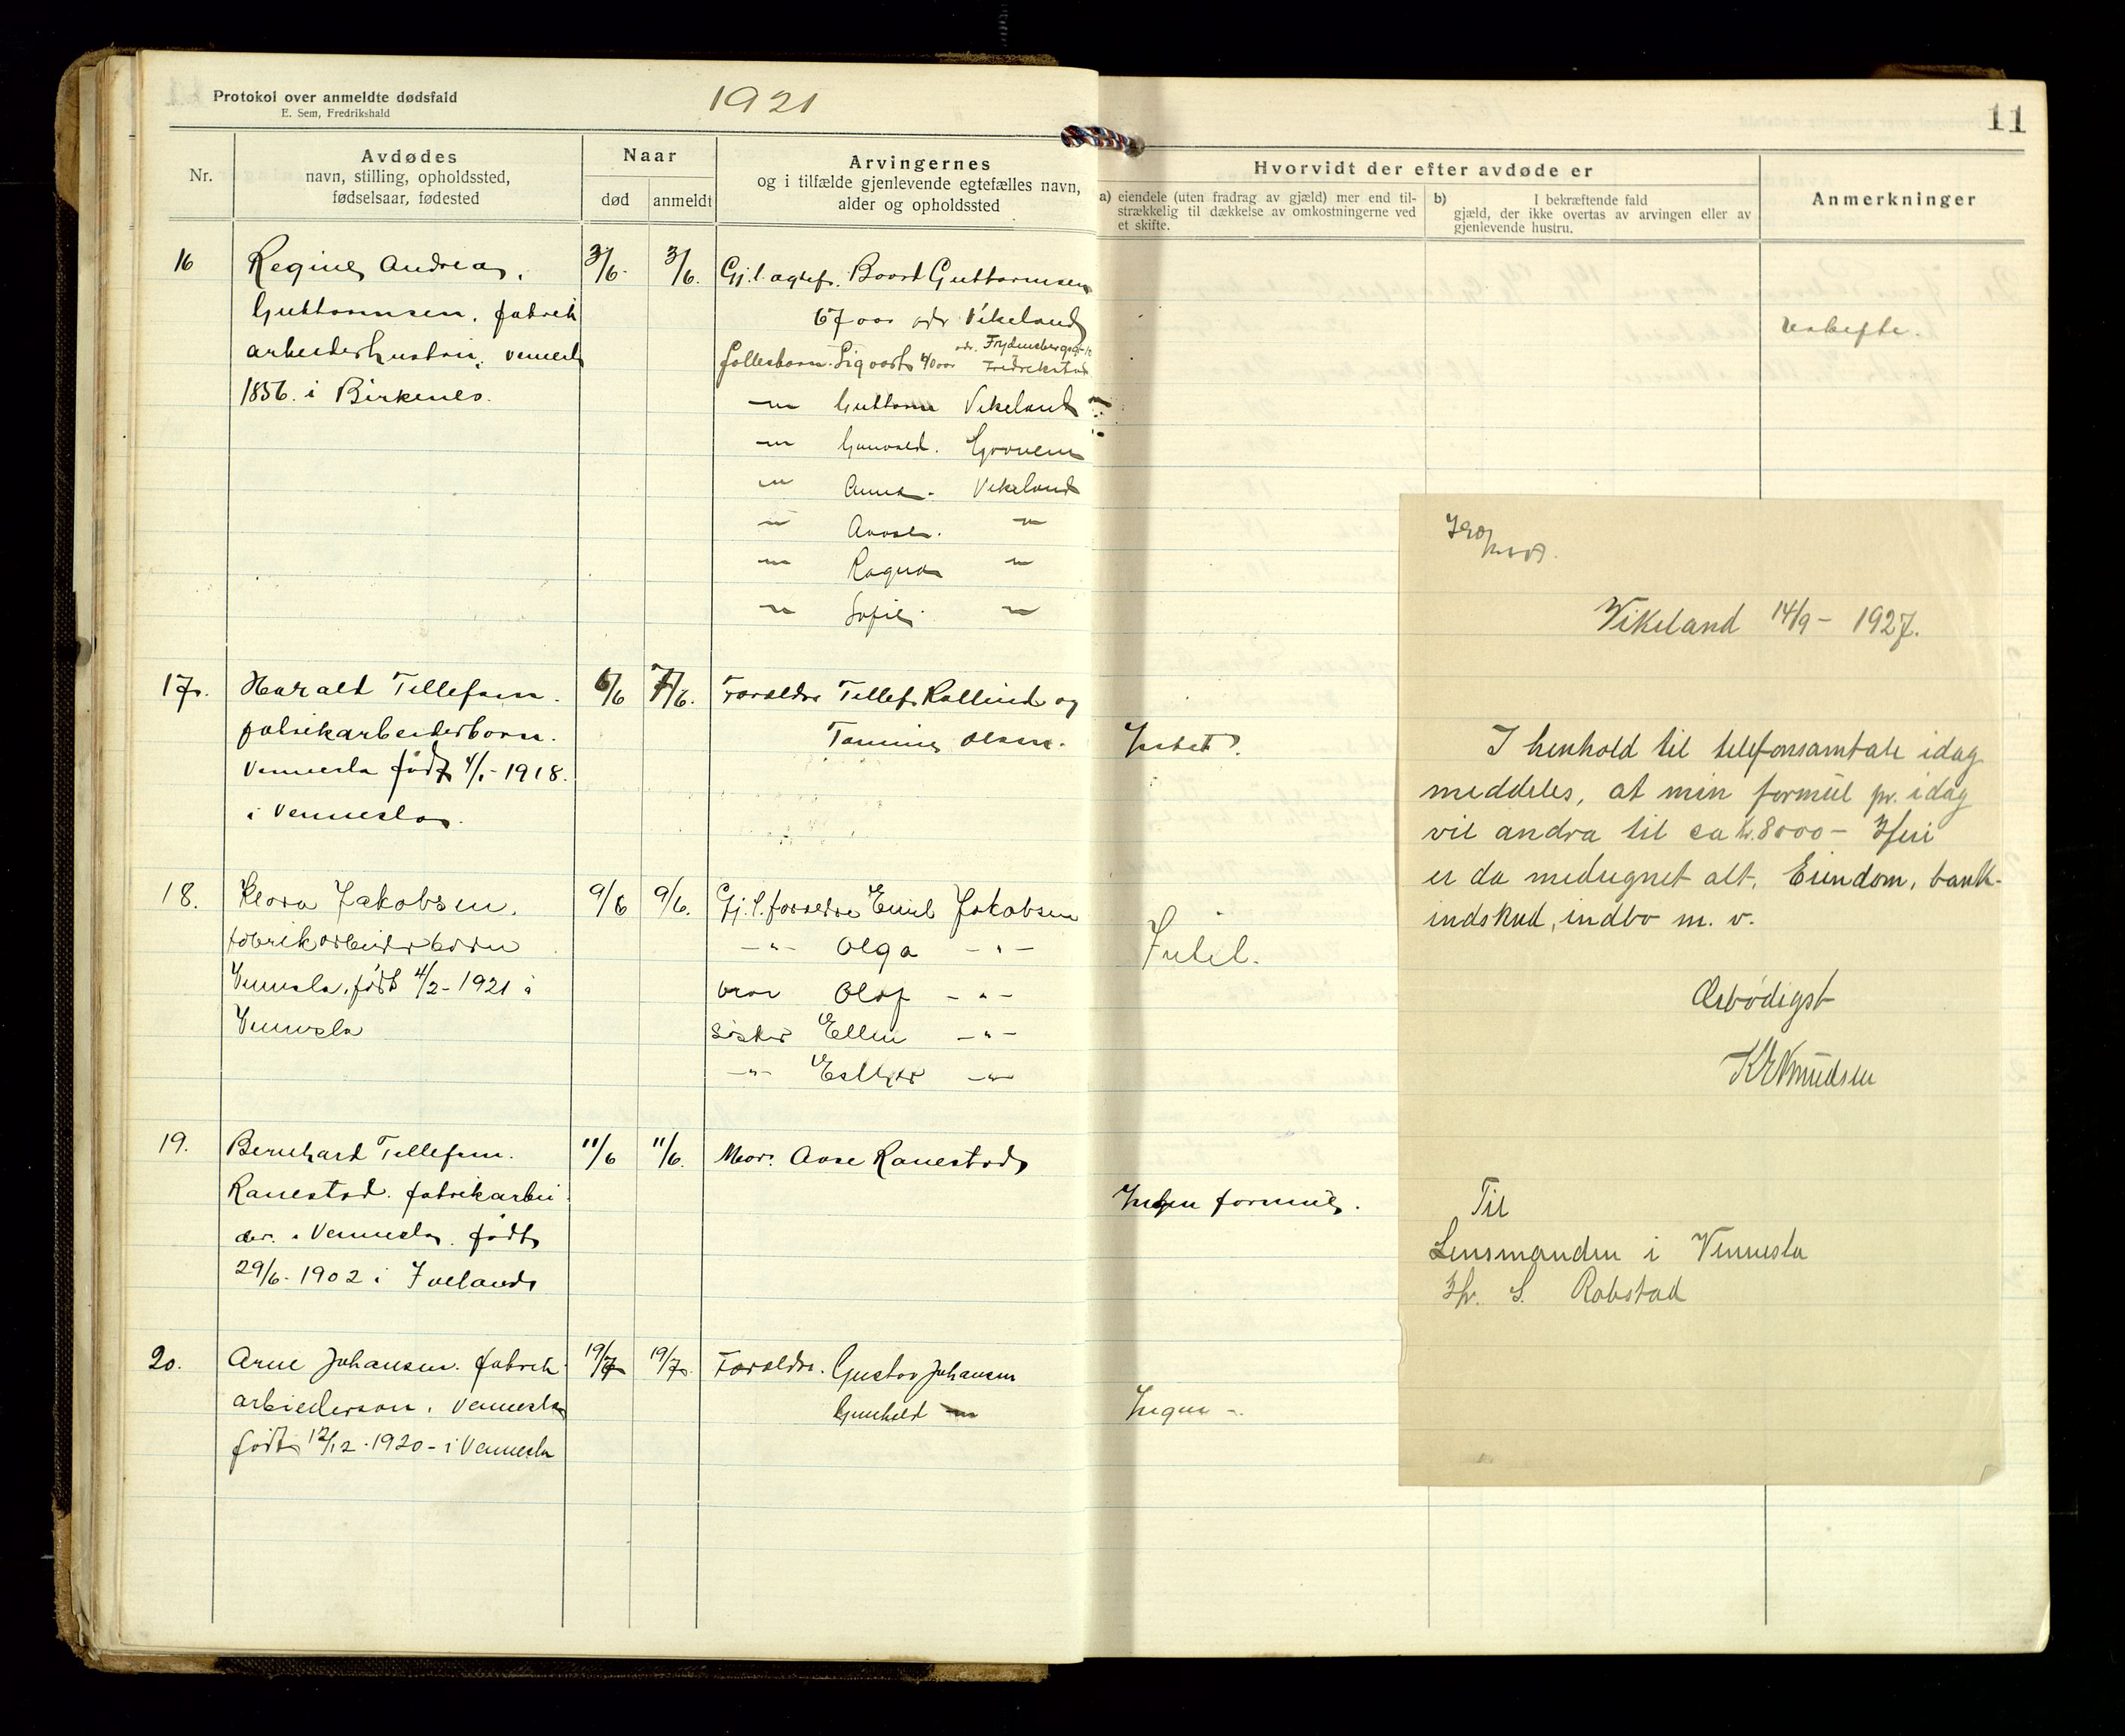 Protokol over anmeldte dødsfald
E. Sem, Fredrikshald
1921
Nr.
Avdødes
navn, stilling, opholdssted,
fødselsaar, fødested
Naar
død
anmeldt
Arvingernes
og i tilfælde gjenlevende egtefælles navn,
alder og opholdssted
16
Regine Andrea
Guttormsen, fabrik
arbeiderhustru, Vennesla
1856. i Birkenes.
3/6.
3/6.
Gj. l. egtef. Baard Guttormsen
67 aar adr Vikeland
adr. Frydensbergsgt
fellesbarn. Sigvart 40 aar Fredrikstad
–"– Guttorm Vikeland
–"– Gunvald. Grovene
–"– Anna. Vikeland
–"– Aasel. –"–
–"– Ragna –"–
–"– Sofie. –"–
17.
Harald Tellefsen.
fabrikarbeiderbarn.
Vennesla født 4/1-1918.
i Vennesla.
6/6
7/6.
Foreldre Tellef Kallevid og
Tomine Olsen.
18.
Klara Jakobsen.
fabrikarbeiderbarn
Vennesla, født 4/2-1921 i
Vennesla
9/6
9/6.
Gj. l. foreldre Emil Jakobsen
–"– Olga –"–
bror Olaf –"–
søster Ellen –"–
–"– Esther –"–
19.
Bernhard Tellefsen.
Ranestad. fabrikarbei
der. i Vennesla. født
29/6-1902 i Iveland
11/6
11/6.
Mor. Aase Ranestad
20.
Arne Johansen. fabrik
arbiederson. Vennesla
født 12/12-1920 - i Vennesla
19/7
19/7.
Foreldre. Gustav Johansen
Gunhild –"–
11
Hvorvidt der efter avdøde er
a) eiendele (uten fradrag av gjæld) mer end til-
strækkelig til dækkelse av omkostningerne ved
et skifte.
b) I bekræftende fald
gjæld, der ikke overtas av arvingen eller av
gjenlevende hustru.
Anmerkninger
Uskifte.
Intet.
Intet.
Ingen formue.
Ingen –.
Vikeland 14/9 - 1927.
I henhold til telefonsamtale idag
meddeles, at min formue pr. idag
vil andra til ca kr. 8000 – Heri
er da medregnet alt. Eiendom, bank-
indskud, indbo m. v.
Ærbødigst
K Knudsen
Til
Lensmanden i Vennesla
Hr. S. Robstad